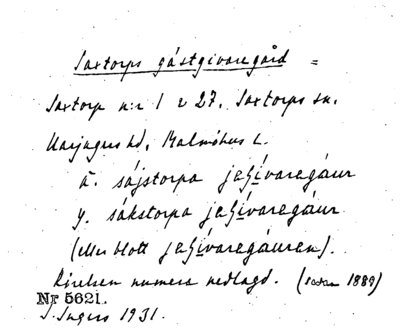 Saxtorps gästgivaregård =
Saxtorp n:r 1 o 27. Saxtorps sn.
Harjagers hd, Malmöhus L.
ä. sájstorpa jeʃívaregáur
y. sákstorpa jeʃívaregáur
(eller blott jeʃívaregáuren).
Rörelsen numera nedlagd. (sedan 1889)
Nr 5621.
I. Ingers 1931.